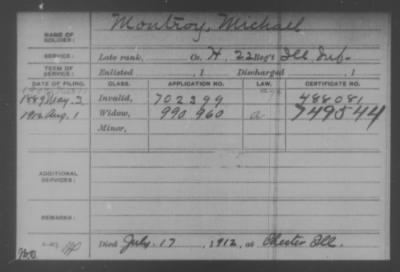 NAME OF SOLDIER: Montroy, Michael
SERVICE: Late rank, Co. H, 22 Reg't Ill. Inf.
TERM OF SERVICE: Enlisted , 1 Discharged , 1
DATE OF FILING. CLASS. APPLICATION NO. LAW. CERTIFICATE NO.
1889 May. 2 Invalid, 702299 488081
1912 Aug. 1 Widow, 990960 a 749544
Minor,
ADDITIONAL SERVICES:
REMARKS:
Died July 17, 1912, at Chester Ill.